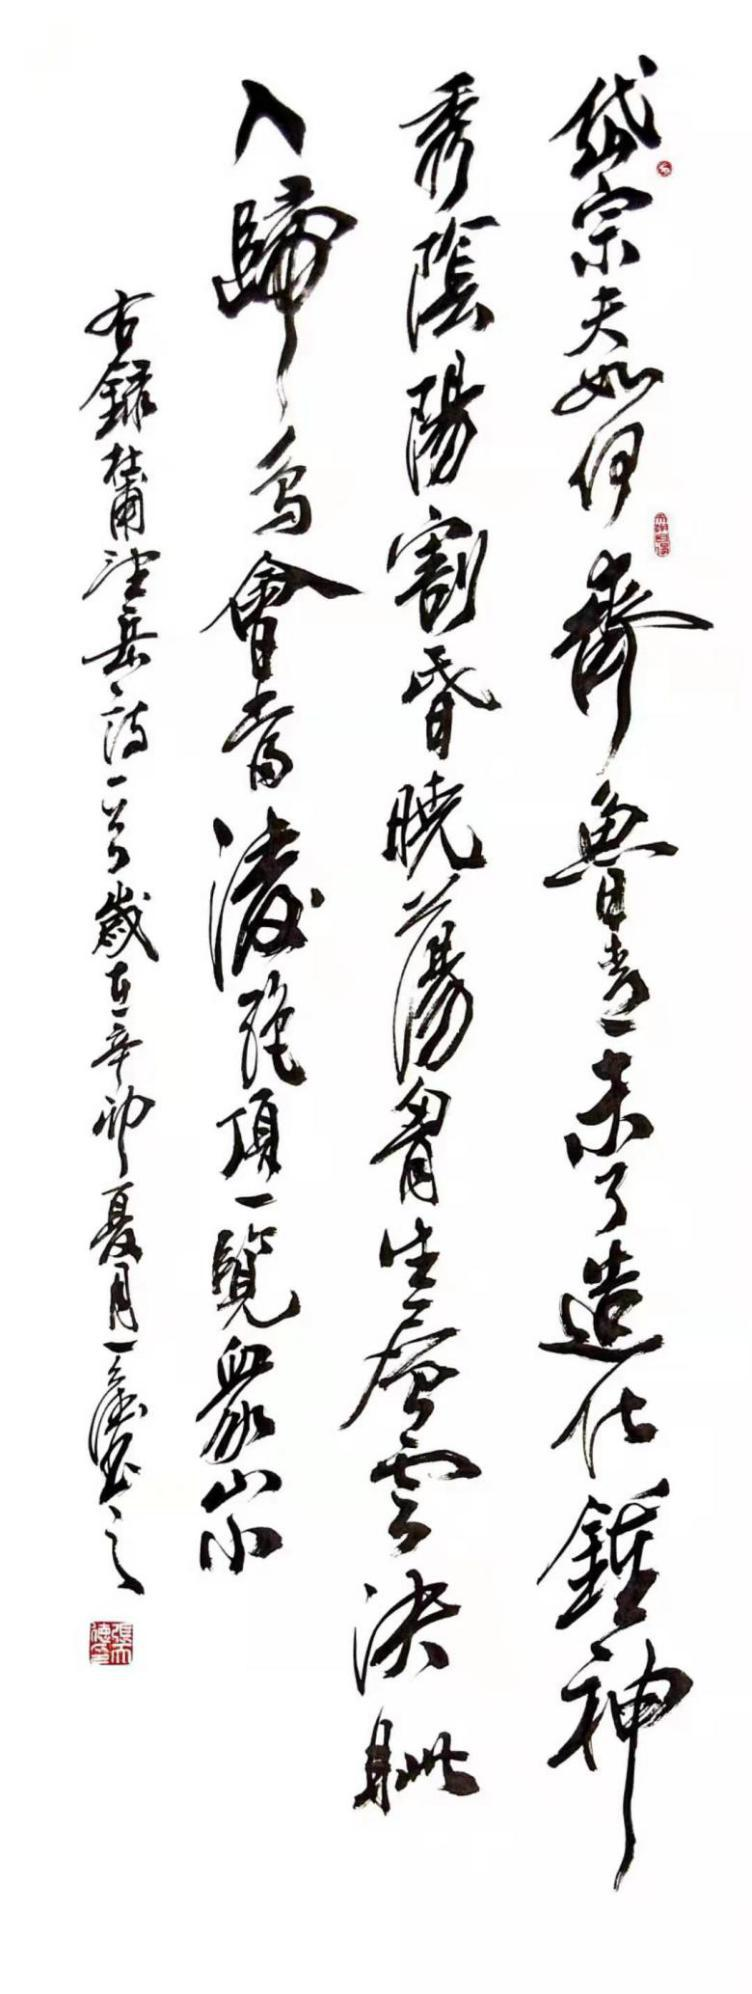 岱宗夫如何齊魯青未了造化鍾神
秀陰陽割昏曉蕩胷生層雲決眦
入歸鳥會當凌絕頂一覽眾山小
右錄杜甫望岳詩一首歲在辛卯夏月一德書之